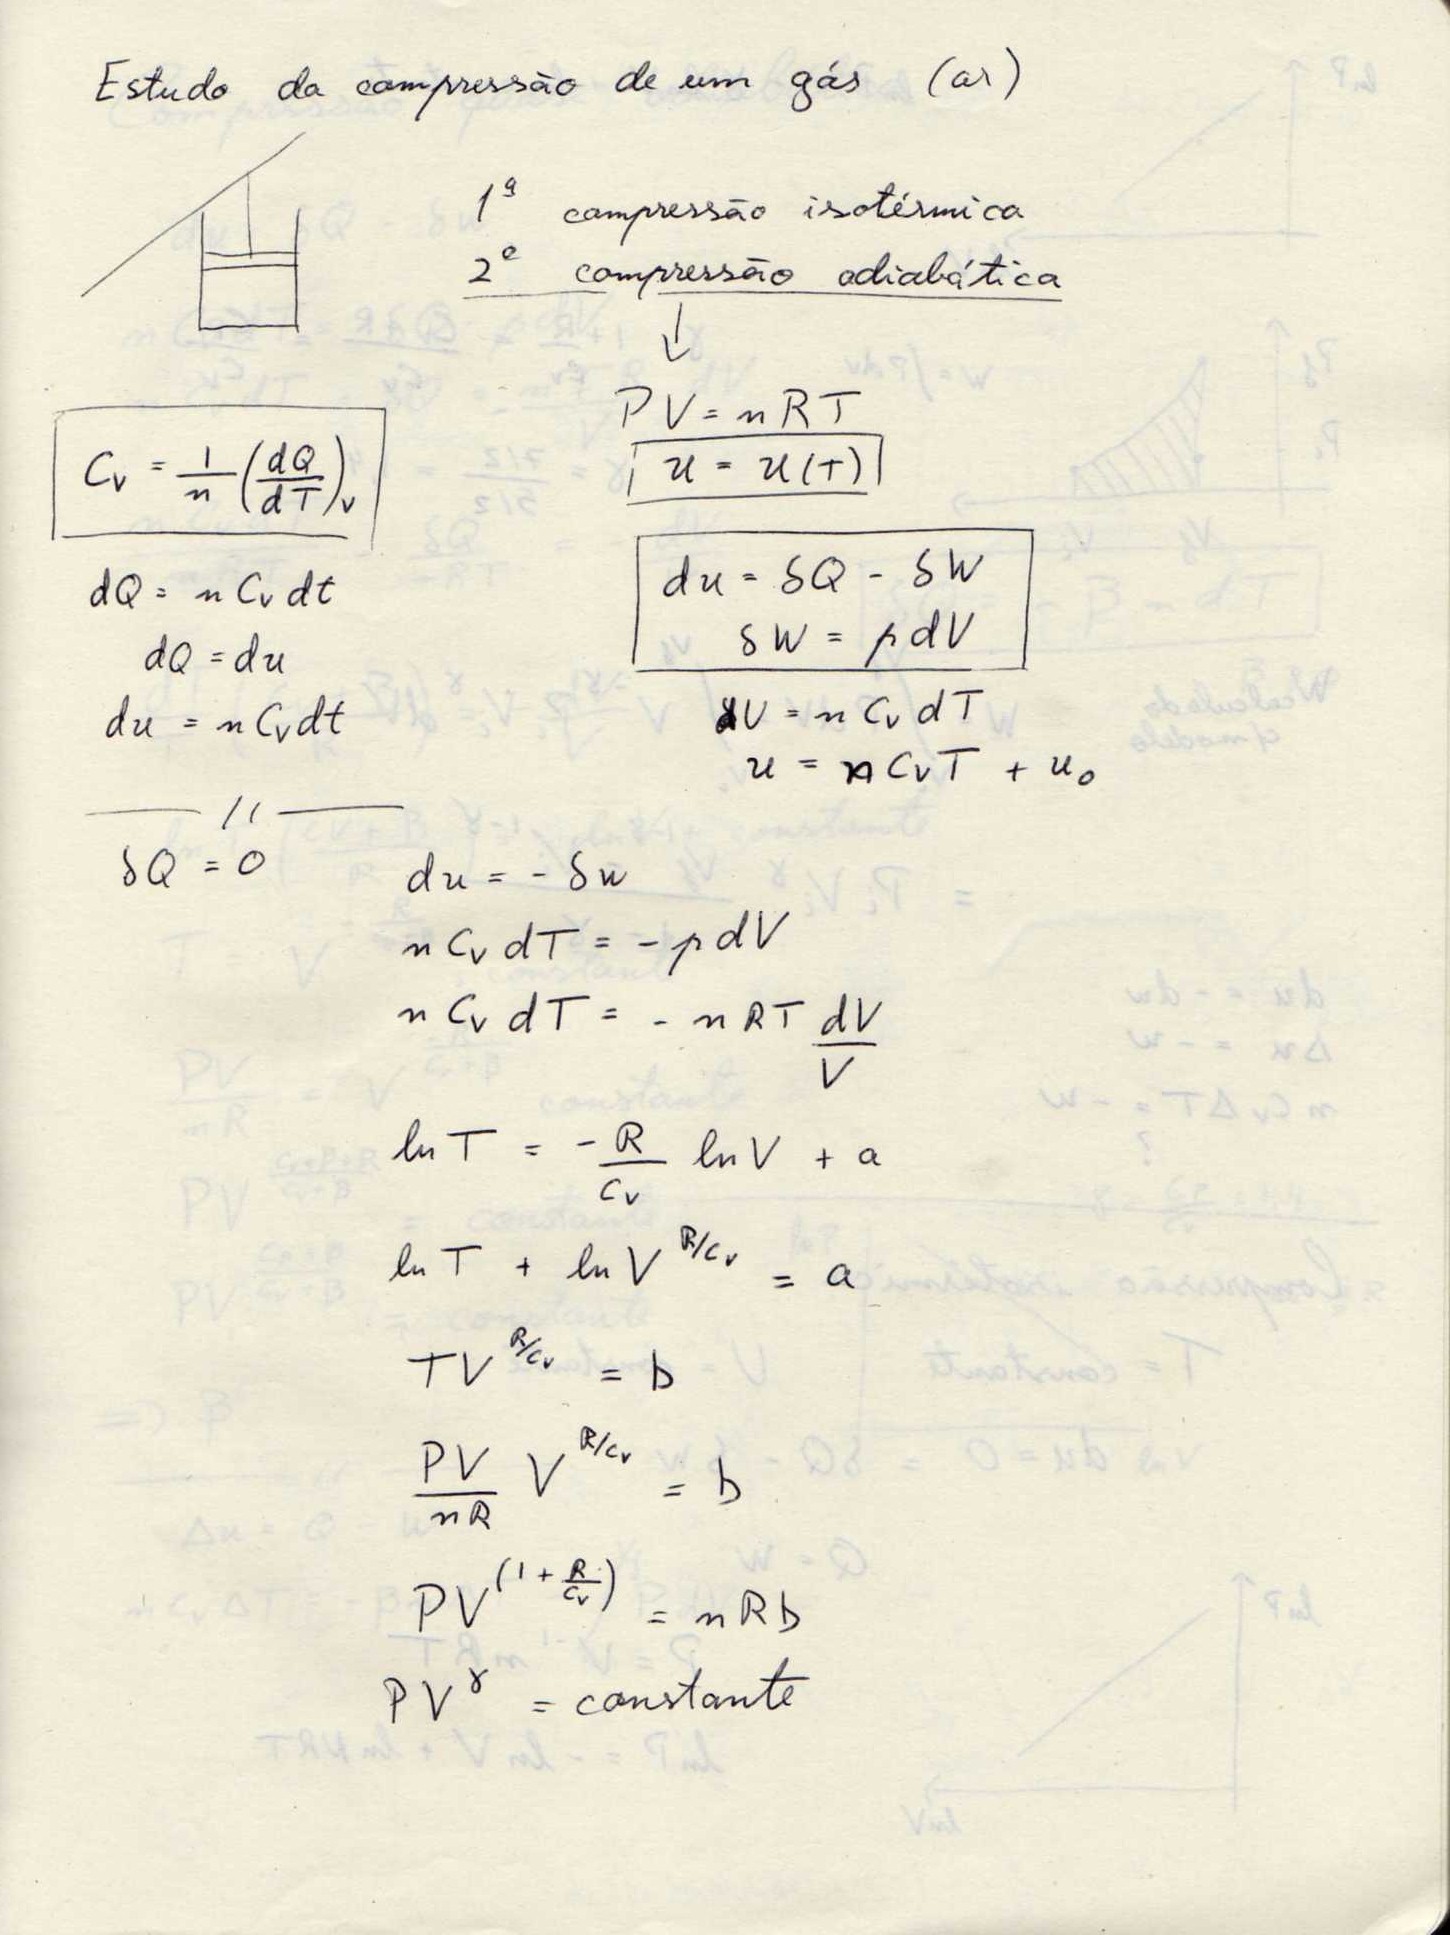 Estudo da compressão de um gás (ar)
1ª compressão isotérmica
2ª compressão adiabática
↓
PV = nRT
u = u(T)
Cv = 1/n (dQ/dT)v
dQ = n Cv dt
dQ = du
du = n Cv dt
du = δQ - δW
δW = p dV
dU = n Cv dT
u = n Cv T + u₀
—— // ——
δQ = 0
du = - δw
n Cv dT = - p dV
n Cv dT = - n RT dV/V
ln T = - R/Cv ln V + a
ln T + ln V^(R/Cv) = a
TV^(R/Cv) = b
PV/nR V^(R/Cv) = b
PV^(1 + R/Cv) = nRb
PV^γ = constante